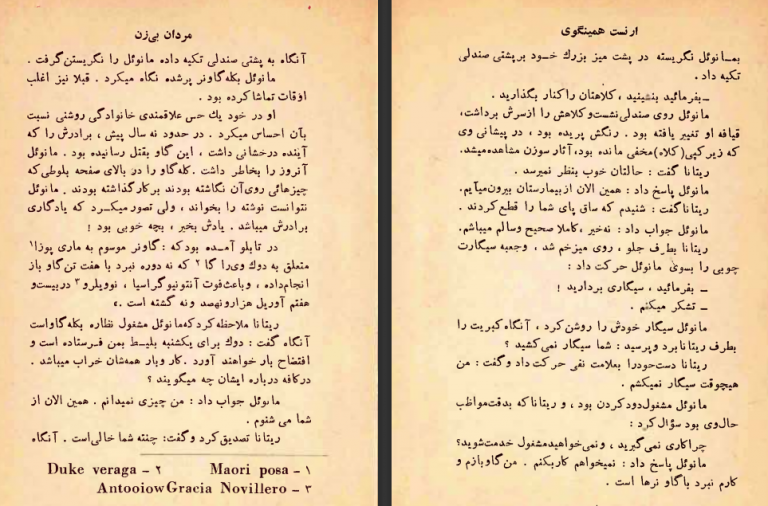 مردان بی‌زن
آنگاه به پشتی صندلی تکیه داده مانوئل را نگریستن گرفت .
مانوئل بکله گاونر پرشده نگاه میکرد . قبلا نیز اغلب
اوقات تماشا کرده بود .
او در خود یك حس علاقمندی خانوادگی روشنی نسبت
بآن احساس میکرد . در حدود نه سال پیش ، برادرش را که
آینده درخشانی داشت ، این گاو بقتل رسانیده بود . مانوئل
آنروز را بخاطر داشت . کله گاو را در بالای صفحه بلوطی که
چیزهائی روی آن نگاشته بودند بر کار گذاشته بودند . مانوئل
نتوانست نوشته را بخواند ، ولی تصور میکرد که یادگاری
برادرش میباشد . یادش بخیر ، بچه خوبی بود !
در تابلو آمده بود که : گاونر موسوم به ماری پوزا۱
متعلق به دوك وی‌را گا ۲ که نه دوره نبرد با هفت تن گاو باز
انجام‌داده ، وباعث فوت آنتونیو گراسیا ، نوویلرو ۳ در بیست و
هفتم آوریل هزارونهصد ونه گشته است .»
ریتانا ملاحظه کرد که مانوئل مشغول نظاره بکله گاو است
آنگاه گفت : دوك برای یکشنبه بلیط بمن فرستاده است و
افتضاح بار خواهند آورد . کار وبار همه‌شان خراب میباشد .
در کافه درباره ایشان چه میگویند ؟
مانوئل جواب داد : من چیزی نمیدانم . همین الان از
شما می شنوم .
ریتانا تصدیق کرد و گفت : چنته شما خالی است . آنگاه
۱ – Maori posa ۲ – Duke veraga
۳ – AntooiowGracia Novillero
ارنست همینگوی
بمانوئل نگریسته در پشت میز بزرك خود بر پشتی صندلی
تکیه داد .
ـ بفرمائید بنشینید ، کلاهتان را کنار بگذارید .
مانوئل روی صندلی نشست و کلاهش را از سرش برداشت ،
قیافه او تغییر یافته بود . رنگش پریده بود ، در پیشانی وی
که زیر کپی (کلاه) مخفی مانده بود ، آثار سوزن مشاهده میشد.
ریتانا گفت : حالتان خوب بنظر نمیرسد .
مانوئل پاسخ داد : همین الان از بیمارستان بیرون میآیم .
ریتانا گفت : شنیدم که ساق پای شما را قطع کردند .
مانوئل جواب داد : نه خیر ، کاملا صحیح وسالم میباشم .
ریتانا بطرف جلو ، روی میزخم شد ، وجعبه سیگارت
چوبی را بسوی مانوئل حرکت داد :
ـ بفرمائید ، سیگاری بردارید !
ـ تشکر میکنم .
مانوئل سیگار خودش را روشن کرد ، آنگاه کبریت را
بطرف ریتانا برد و پرسید : شما سیگار نمی کشید ؟
ریتانا دست خود را بعلامت نفی حرکت داد و گفت : من
هیچوقت سیگار نمیکشم .
مانوئل مشغول دود کردن بود ، و ریتانا که بدقت مواظب
حال وی بود سؤال کرد :
چرا کاری نمی گیرید ، ونمی خواهید مشغول خدمت شوید ؟
مانوئل پاسخ داد : نمیخواهم کار بکنم . من گاو بازم و
کارم نبرد با گاو نرها است .